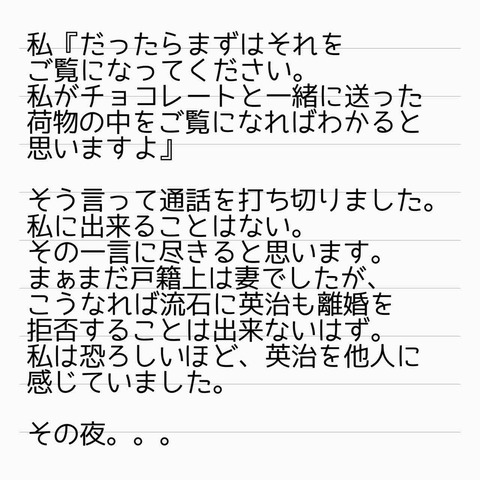 私『だったらまずはそれを
ご覧になってください。
私がチョコレートと一緒に送った
荷物の中をご覧になればわかると
思いますよ』
そう言って通話を打ち切りました。
私に出来ることはない。
その一言に尽きると思います。
まぁまだ戸籍上は妻でしたが、
こうなれば流石に英治も離婚を
拒否することは出来ないはず。
私は恐ろしいほど、英治を他人に
感じていました。
その夜。。。